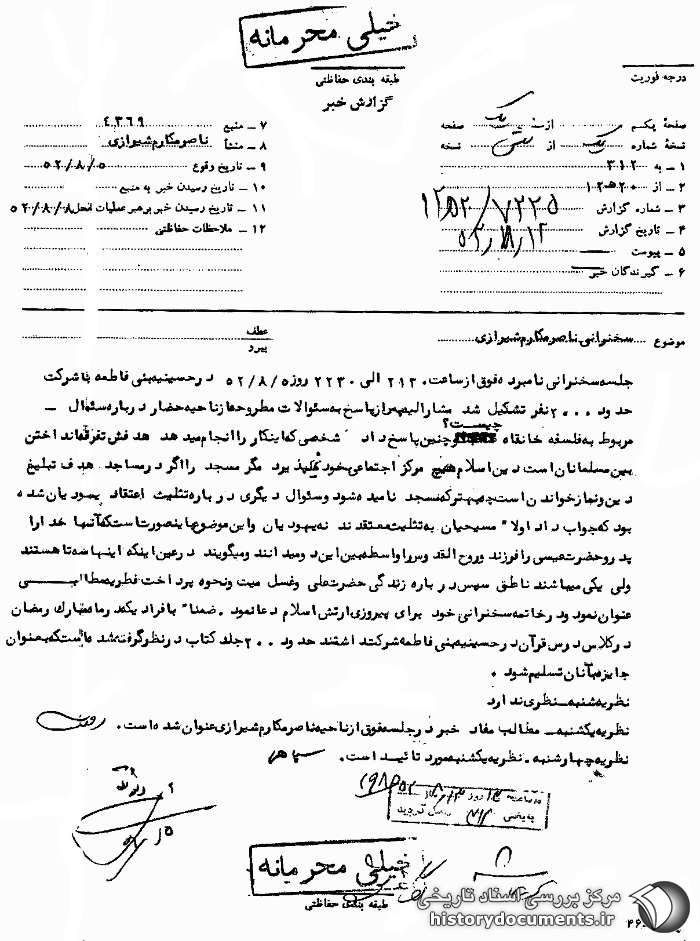 خیلی محرمانه
طبقه بندی حفاظتی
درجه فوریت
گزارش خبر
صفحهٔ یکم از یک صفحه
نسخهٔ شماره یک از نسخه
۱ ـ به ۳۱۲
۲ ـ از ۲۰ه۱۲
۳ ـ شماره گزارش ۱۲۵۲/۷۲۲۵
۴ ـ تاریخ گزارش
۵ ـ پیوست
۶ ـ گیرندگان خبر
۷ ـ منبع ۴۳۶۹
۸ ـ منشأ ناصر مکارم شیرازی
۹ ـ تاریخ وقوع ۵۲/۸/۵
۱۰ ـ تاریخ رسیدن خبر به منبع
۱۱ ـ تاریخ رسیدن خبر برهبر عملیات محل ۵۲/۸/۸
۱۲ ـ ملاحظات حفاظتی
موضوع سخنرانی ناصر مکارم شیرازی
عطف
پیرو
جلسه سخنرانی نامبرده فوق از ساعت ۲۱۳۰ الی ۲۲۳۰ روز ۵۲/۸/۵ در حسینیه بنی فاطمه با شرکت
حدود ۲۰۰۰ نفر تشکیل شد مشارالیه پس از پاسخ به سئوالات مطروحه از ناحیه حضار درباره سئوال ـ
مربوط به فلسفه خانقاه چیست؟ چنین پاسخ داد شخصی که اینکار را انجام میدهد هدفش تفرقه انداختن
بین مسلمانان است دین اسلام هیچ مرکز اجتماعی خود نمی‌پذیرد مگر مسجد را اگر در مساجد هدف تبلیغ
دین و نماز خواندن است چه بهتر که مسجد نامیده شود و سئوال دیگری درباره تثلیث اعتقاد یهودیان شده
بود که جواب داد اولا" مسیحیان به تثلیث معتقدند نه یهودیان و این موضوع باینصورت است که آنها خدا را
پدر و حضرت عیسی را فرزند و روح القدوس را واسطه بین این دو میدانند و میگویند در عین اینکه اینها سه تا هستند
ولی یکی میباشند ناطق سپس درباره زندگی حضرت علی و غسل میت و نحوه پرداخت فطریه مطالبی
عنوان نمود و در خاتمه سخنرانی خود برای پیروزی ارتش اسلام دعا نمود. ضمنا" بافراد یکه در ماه مبارک رمضان
در کلاس درس قرآن در حسینیه بنی فاطمه شرکت داشتند حدود ۲۰۰ جلد کتاب در نظر گرفته شده است که بعنوان
جایزه بآنان تسلیم شود.
نظریه شنبه ـ نظری ندارد
نظریه یکشنبه ـ مطالب مفاد خبر در جلسه فوق از ناحیه ناصر مکارم شیرازی عنوان شده است.
نظریه چهارشنبه ـ نظریه یکشنبه مورد تائید است.
خیلی محرمانه
طبقه بندی حفاظتی
مرکز بررسی اسناد تاریخی
historydocuments.ir